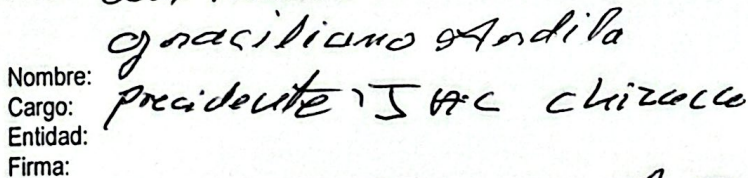 graciliano Ardila
Nombre:
Cargo: precidente JAC
Entidad:
Firma: